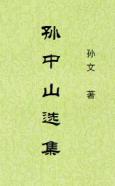 孙文 著
孙中山选集